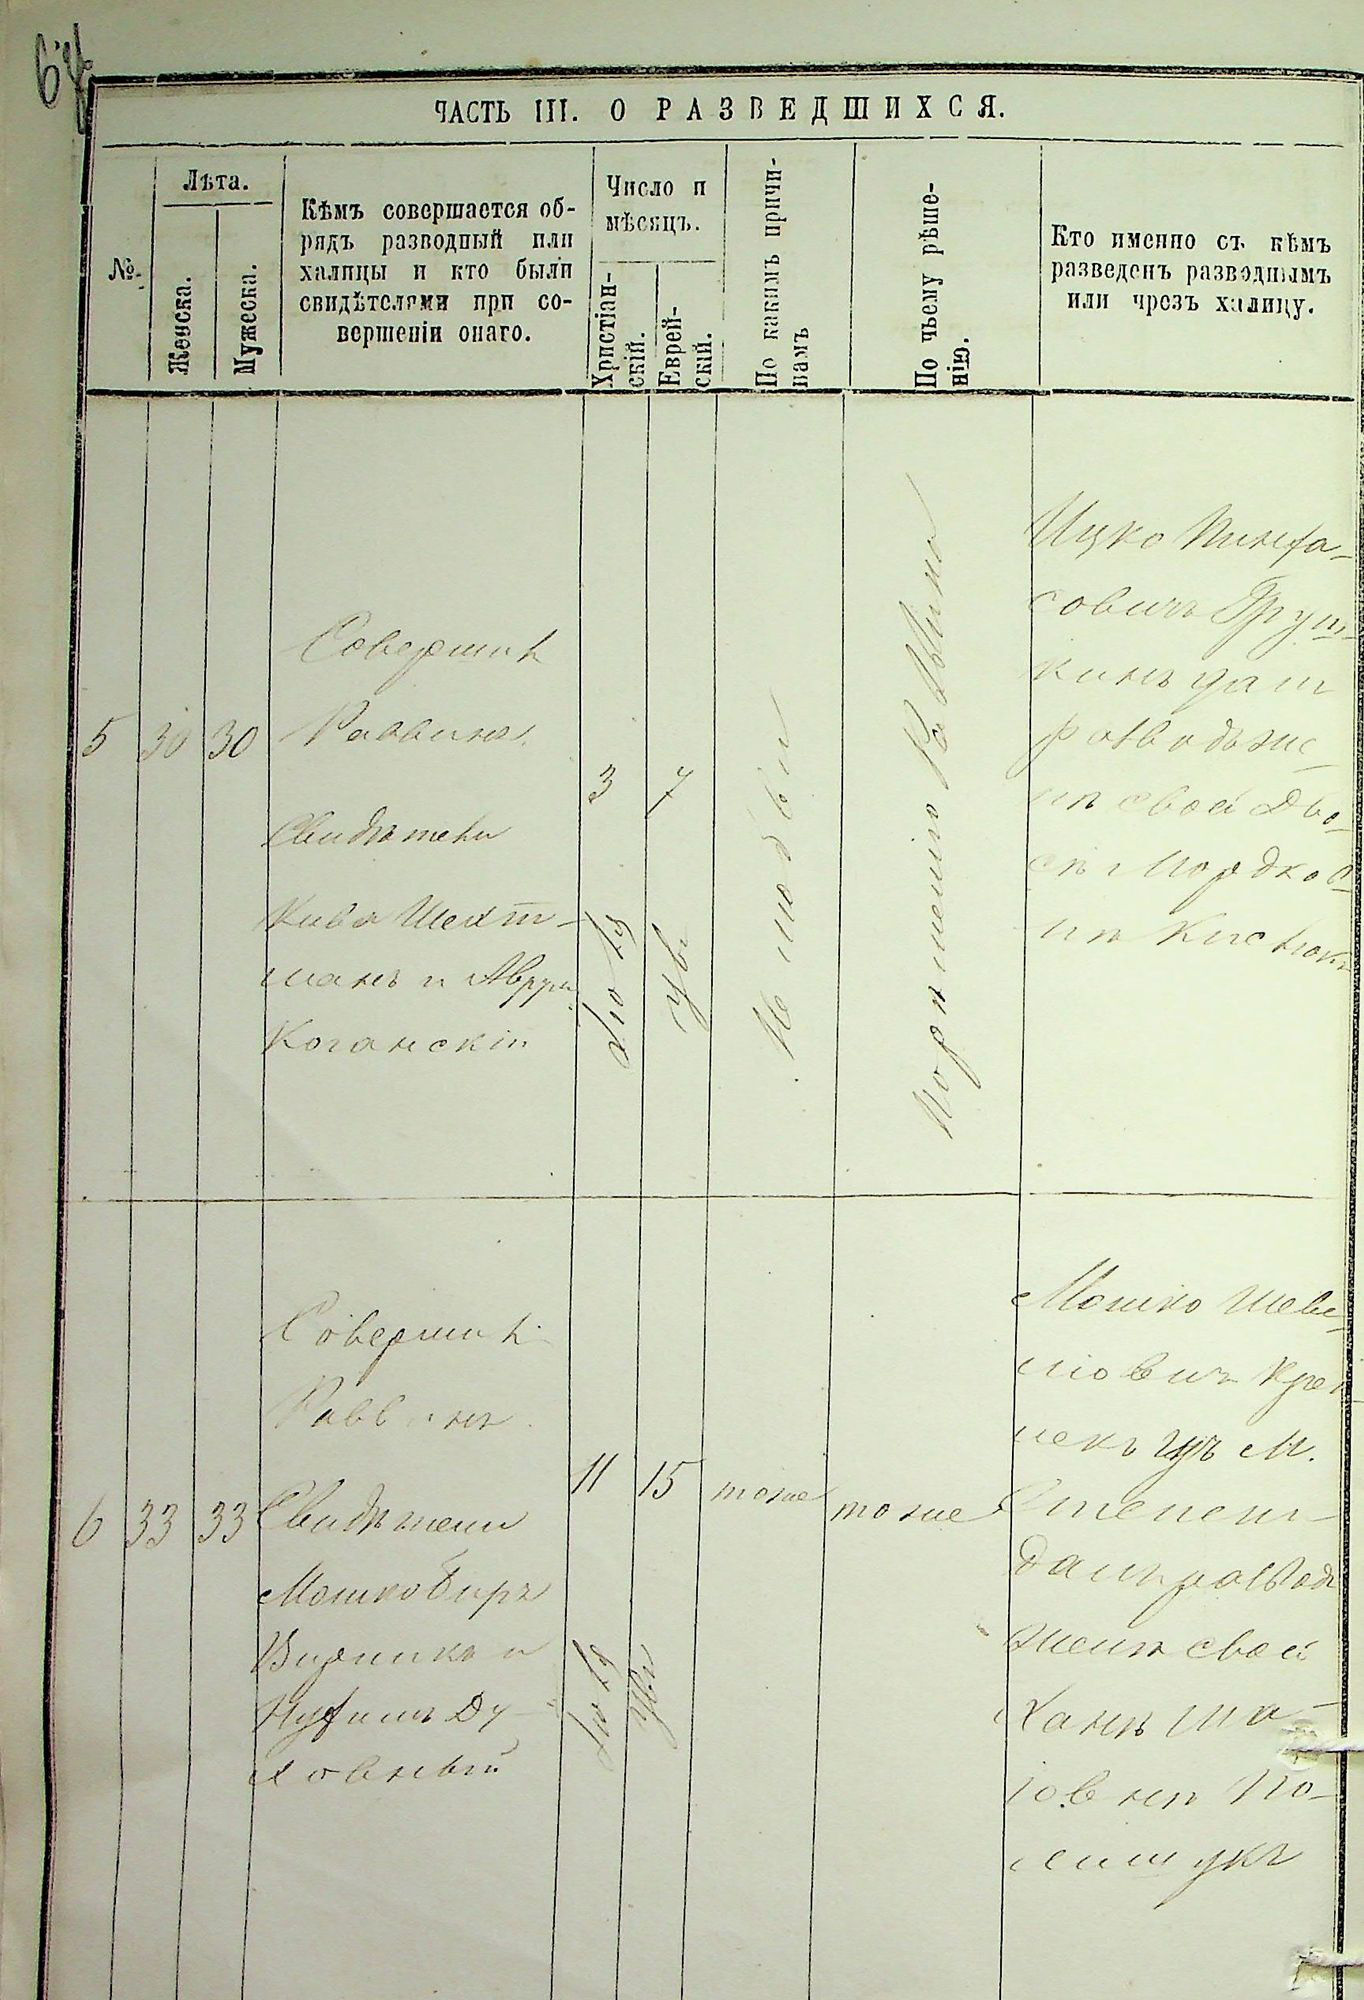 ЧАСТЬ III. О РАЗВЕДШИХСЯ.
№.
Лѣта.
Женска.
Мужеска.
Кѣмъ совершается об-
рядъ разводный или
халицы и кто были
свидѣтелями при со-
вершеніи онаго.
Число и
мѣсяцъ.
Христіан-
скій.
Еврей-
скій.
По какимъ причи-
намъ
По чьему рѣше-
нію.
Кто именно съ кѣмъ
разведенъ разводнымъ
или чрезъ халицу.
5
30
30
Совершилъ
Раввинъ.
Свидѣтели
Кива Шехт-
манъ и Аврум
Коганскій
3
Июля
7
Не любви
По решенію Раввина
Ицко Пинха-
совичъ Груш-
кинъ далъ
разводъ же-
нѣ своей Дво-
сѣ Мордков-
нѣ
6
33
33
Совершилъ
Раввинъ
Свидѣтели
Мошко Биръ
Вирникъ и
Нухимъ Ду-
ховный
11
Июля
15
тоже
тоже
Мошко
изъ М.
далъ разводъ
женѣ своей
Ханѣ
По-
лищукъ